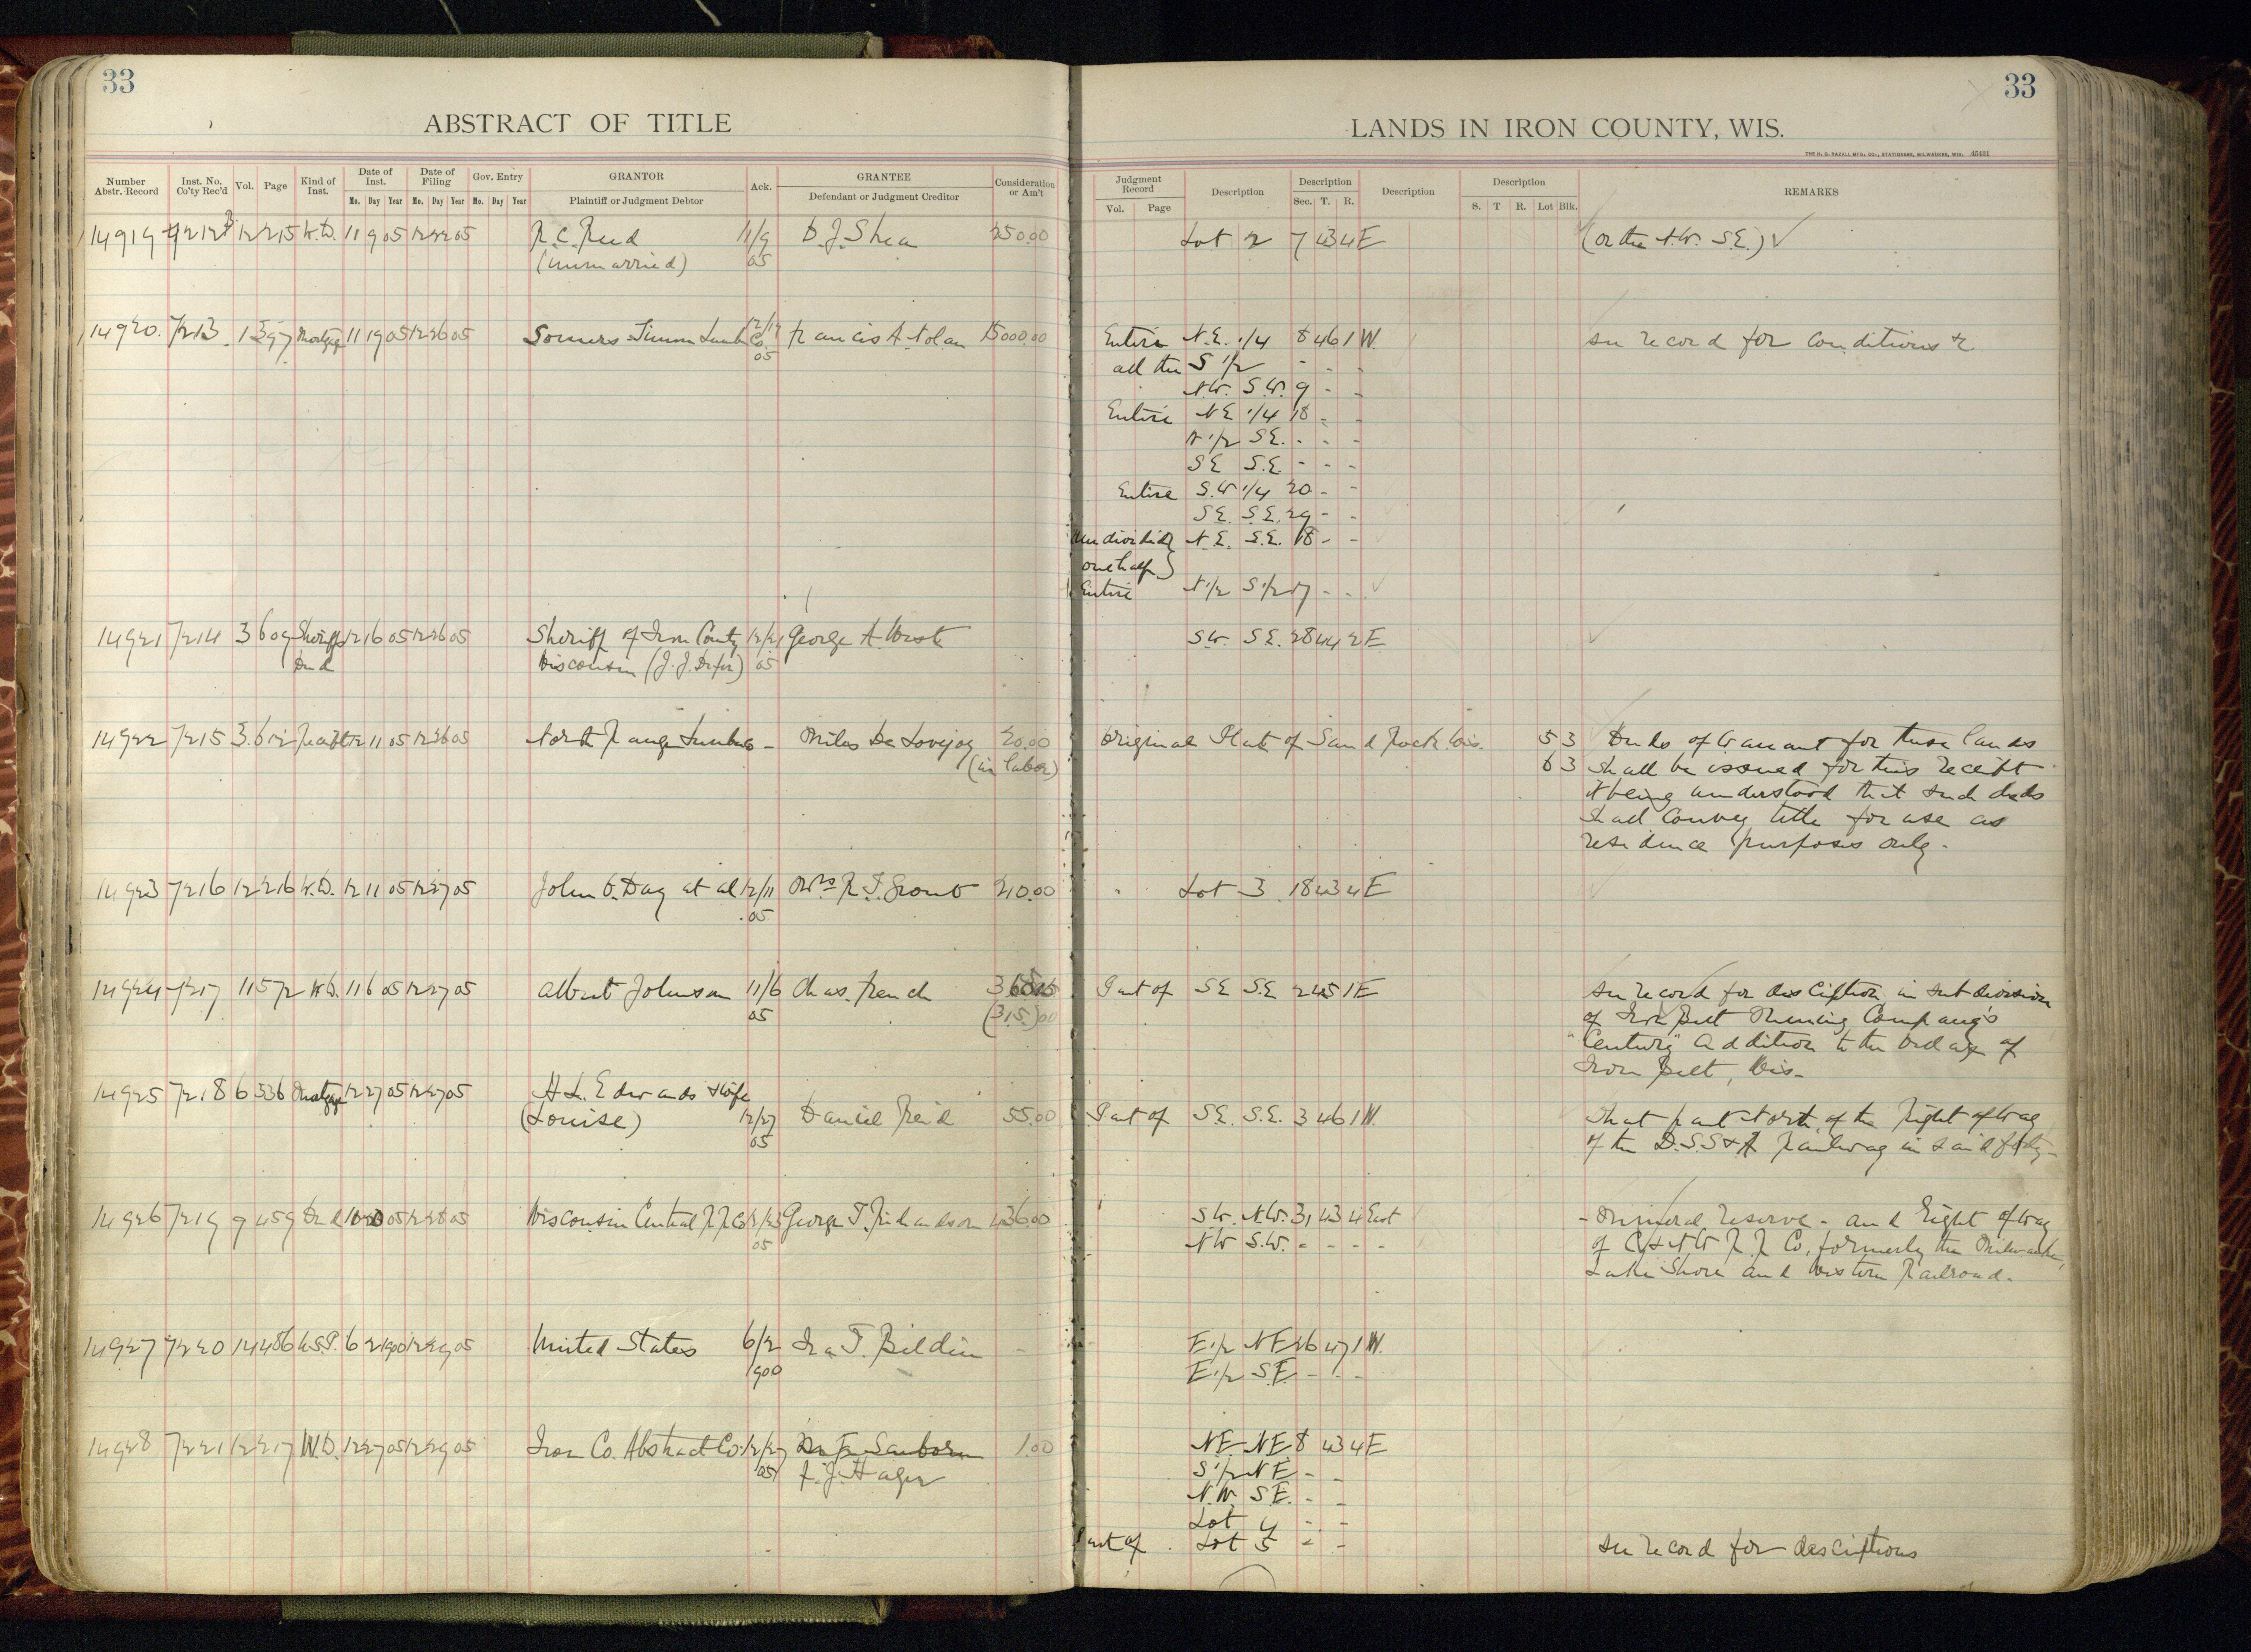 33
33
ABSTRACT OF TITLE
LANDS IN IRON COUNTY, WIS.
THE H. G. RAZALL MFG. CO., STATIONERS, MILWAUKEE, WIS. 45431
Number Abstr. Record Inst. No. Co'ty Rec'd Vol. Page Kind of Inst. Date of Inst. Date of Filing Gov. Entry GRANTOR Ack. GRANTEE Consideration or Am't
Mo. Day Year Mo. Day Year Mo. Day Year Plaintiff or Judgment Debtor Defendant or Judgment Creditor
Judgment Record Description Description Description Description REMARKS
Vol. Page Sec. T. R. S. T R. Lot Blk.
14919 7212 12 215 W.D. 11 9 05 12 22 05 R.C. Reed 11/9 D.J. Shea 250.00 Lot 2 7 43 4 E (or the N.W. S.E.) ✓
(unmarried) 05
14920. 7213 1 397 Mortgage 11 19 05 12 26 05 Somers Lumb Co. 12/19 Francis A. Nolan 15000.00 Entire N.E. 1/4 8 46 1 W. see record for Conditions &c.
05 all the S 1/2 - - -
N.W. S.W. 9 - -
Entire NE 1/4 18 - -
N 1/2 SE. - - -
SE S.E. - - -
Entire S.W 1/4 20 - -
SE. SE. 29 - -
Undivided N.E. S.E. 18 - -
one half }
Entire N 1/2 S 1/2 17 - -
14921 7214 3 609 Sheriff's 12 16 05 12 26 05 Sheriff of Iron County 12/21 George A. West SW. SE. 28 44 2 E
Deed Wisconsin (J.J. Defer) 05
14922 7215 3 612 Receipt 12 11 05 12 26 05 North Range Lumber Co - Miles De Lovejoy 20.00 Original Plat of Sand Rock Wis. 5 3 Deeds of Warrant for these lands
(in labor) 6 3 shall be issued for this receipt
it being understood that such deeds
shall Convey title for use as
residence purposes only.
14923 7216 12 216 W.D. 12 11 05 12 27 05 John O. Day et al 12/11 Mrs R.J. Grout 210.00 Lot 3 18 43 4 E
05
14924 7217 11 572 W.D. 11 6 05 12 27 05 Albert Johnson 11/6 Chas. French Part of SE SE 2 45 1 E see record for description in subdivision
05 (315.)00 of Iron Belt Mining Company's
"Century" Addition to the Village of
Iron Belt, Wis-
14925 7218 6 536 Mortgage 12 27 05 12 27 05 H.L. Edwards & Wife
(Louise) 12/27 Daniel Reid 55.00 Part of SE. S.E. 3 46 1 W. That part North of the Right of Way
05 of the D.S.S & A Railway in said forty-
14926 7219 9 459 Deed 05 12 28 05 Wisconsin Central R.R. Co 12/23 George T. Richardson 436.00 SW. N.W. 31 43 4 East - Mineral reserve - and Right of Way
05 NW S.W. - - - - of C & N W R.R Co, formerly the Milwaukee,
Lake Shore and Western Railroad.
14927 7220 14 486 U.S.P. 6 2 1900 12 29 05 United States 6/2 Ira T. - E 1/2 NE 26 47 1 W.
1900 E 1/2 SE - - -
14928 7221 12 217 W.D. 12 27 05 12 29 05 Iron Co. Abstract Co. 12/27 Sanborn 1.00 NE NE 8 43 4 E
05 F.J. Hager S 1/2 NE - -
N.W. SE. - -
Lot 4 - -
Part of Lot 5 - - see record for descriptions